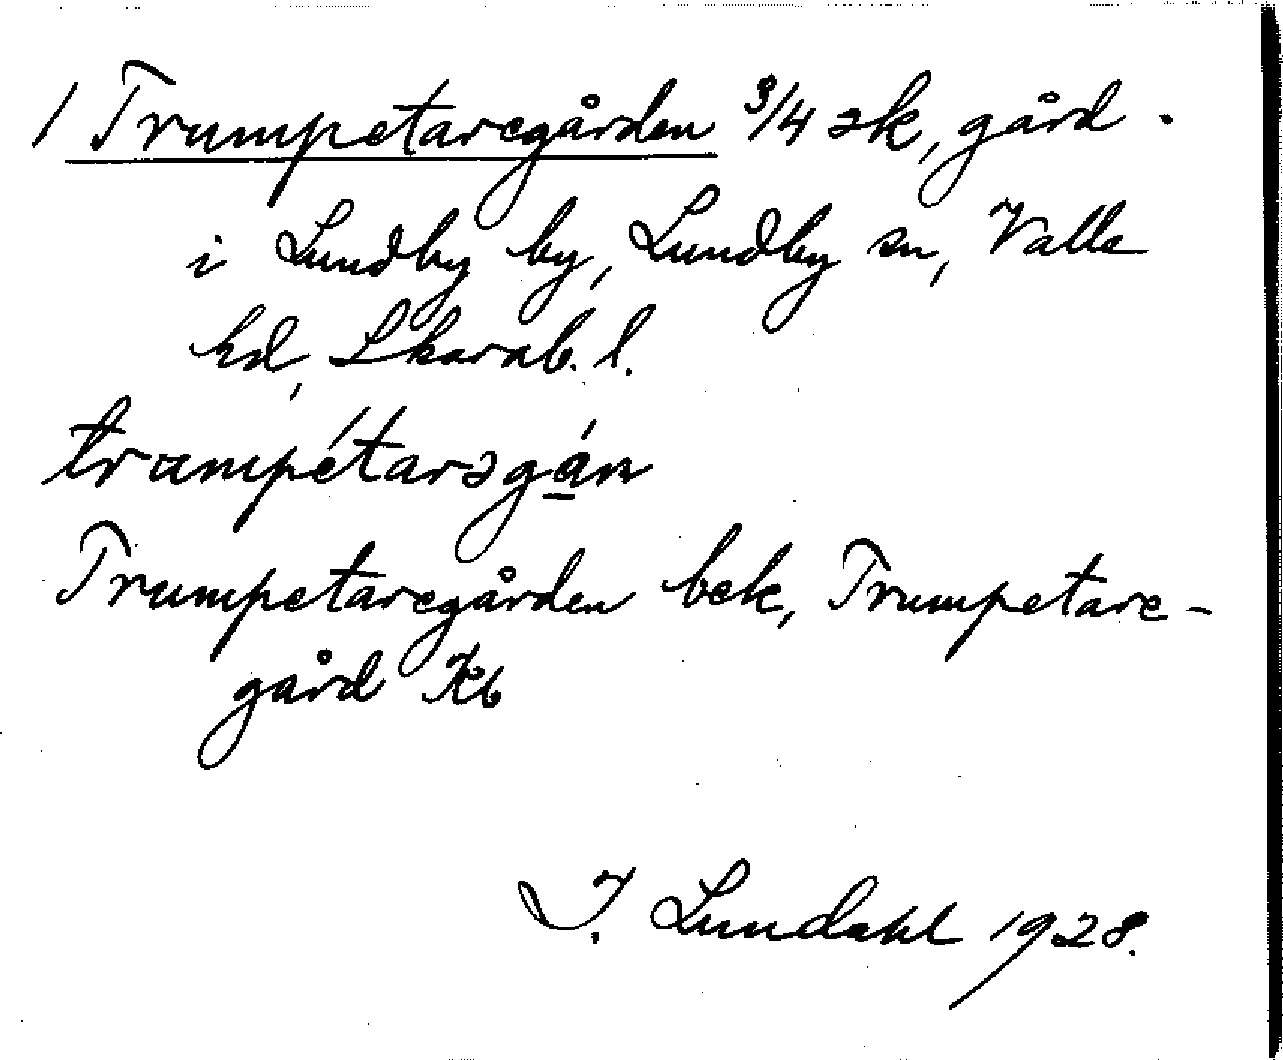 1 Trumpetaregården 3/4 sk, gård
i Lundby by, Lundby sn, Valle
hd, Skarab. l.
trampétarəgán
Trumpetaregården bek, Trumpetare-
gård Kb
I. Lundahl 1928.